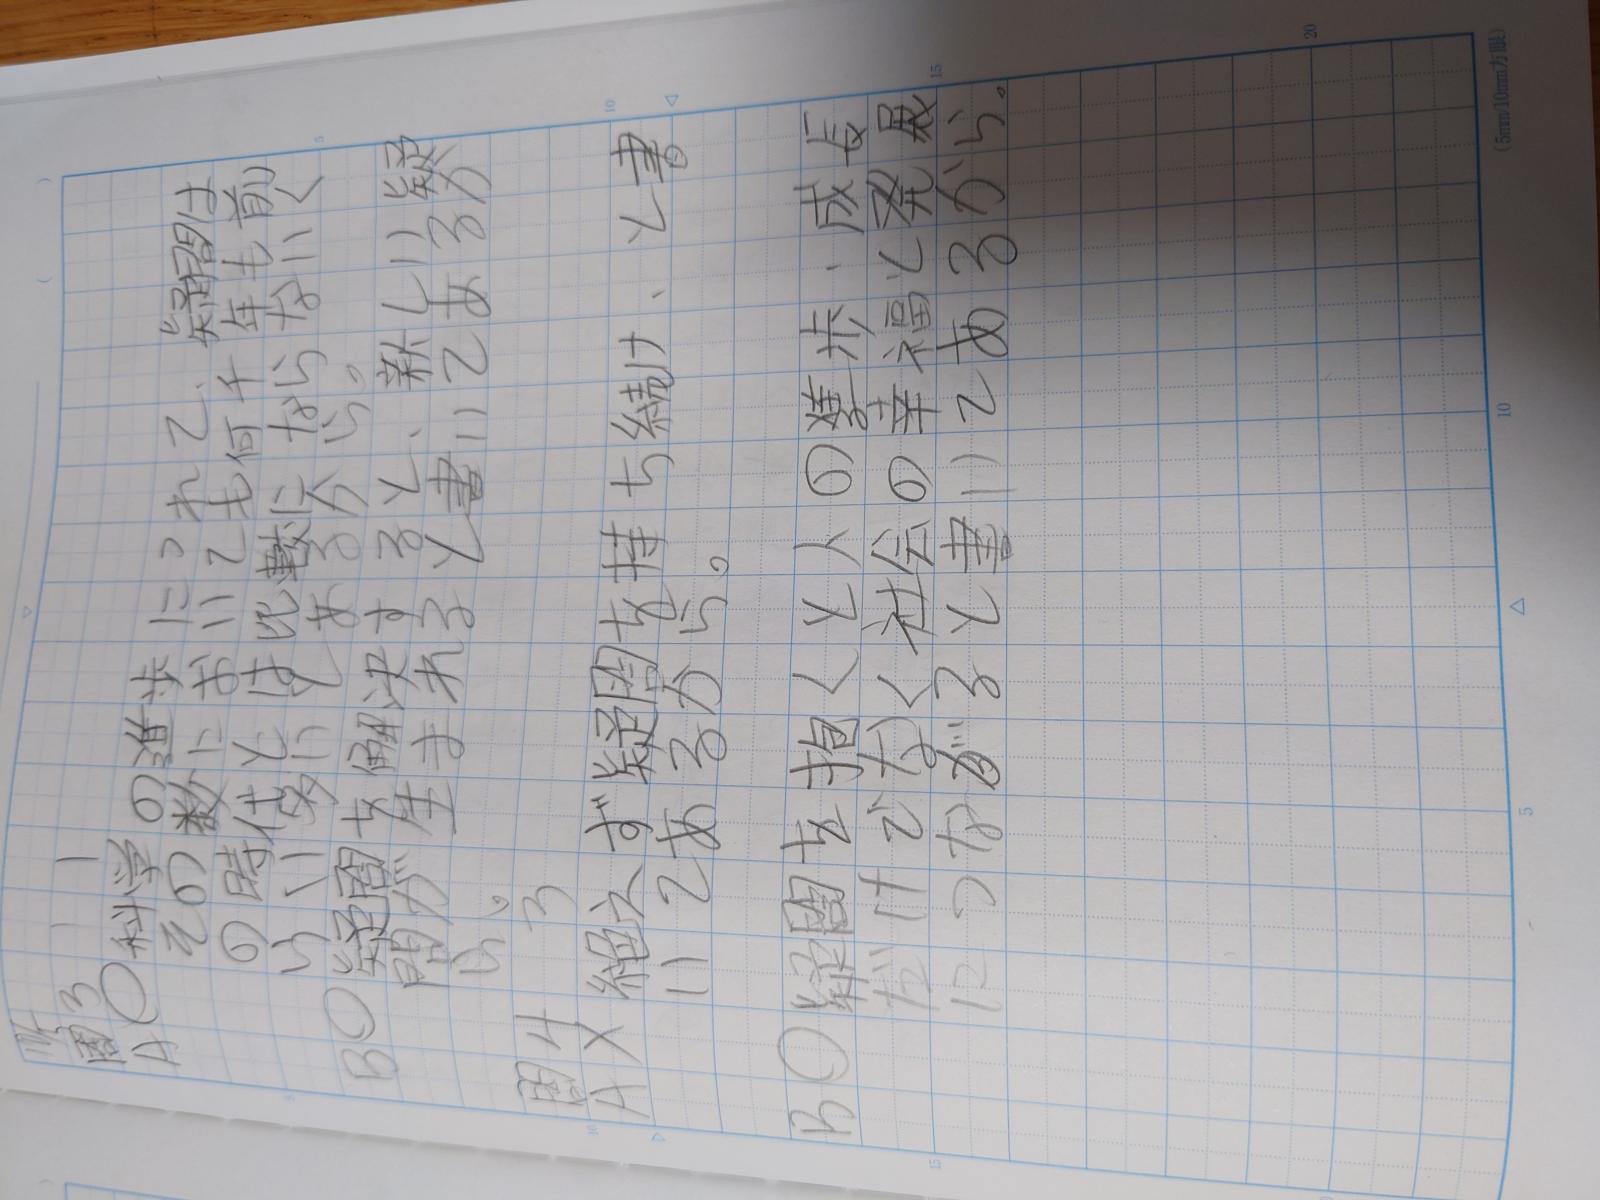 問3 1
A○科学の進歩につれて、疑問は
その数においても何千年も前
の時代とは比較にならないく
らい多いとあるから。
B○疑問を解決すると、新しい疑
問が生まれると書いてあるか
ら。
問4 3
A×絶えず疑問を持ち続け、と書
いてあるから。
B○疑問を抱くと人の進歩・成長
だけでなく社会の幸福と発展
につながると書いてあるから。
5
10
15
20
5
10
15
(5mm/10mm方眼)